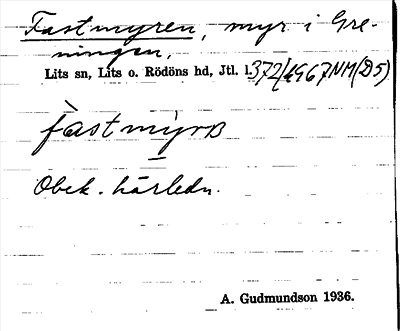 Fastmyren, myr i Gre-
ningen,
Lits sn, Lits o. Rödöns hd, Jtl. l.
fastmyrɴ
Obek. härledn.
A. Gudmundson 1936.